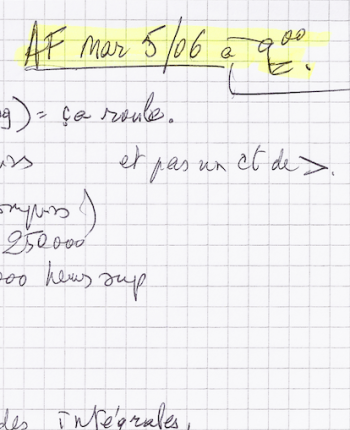 AF mar 5/06 à 9⁰⁰
) = ça roule.
et pas un ct de >.
)
250000
000 heures sup
des intégrales,